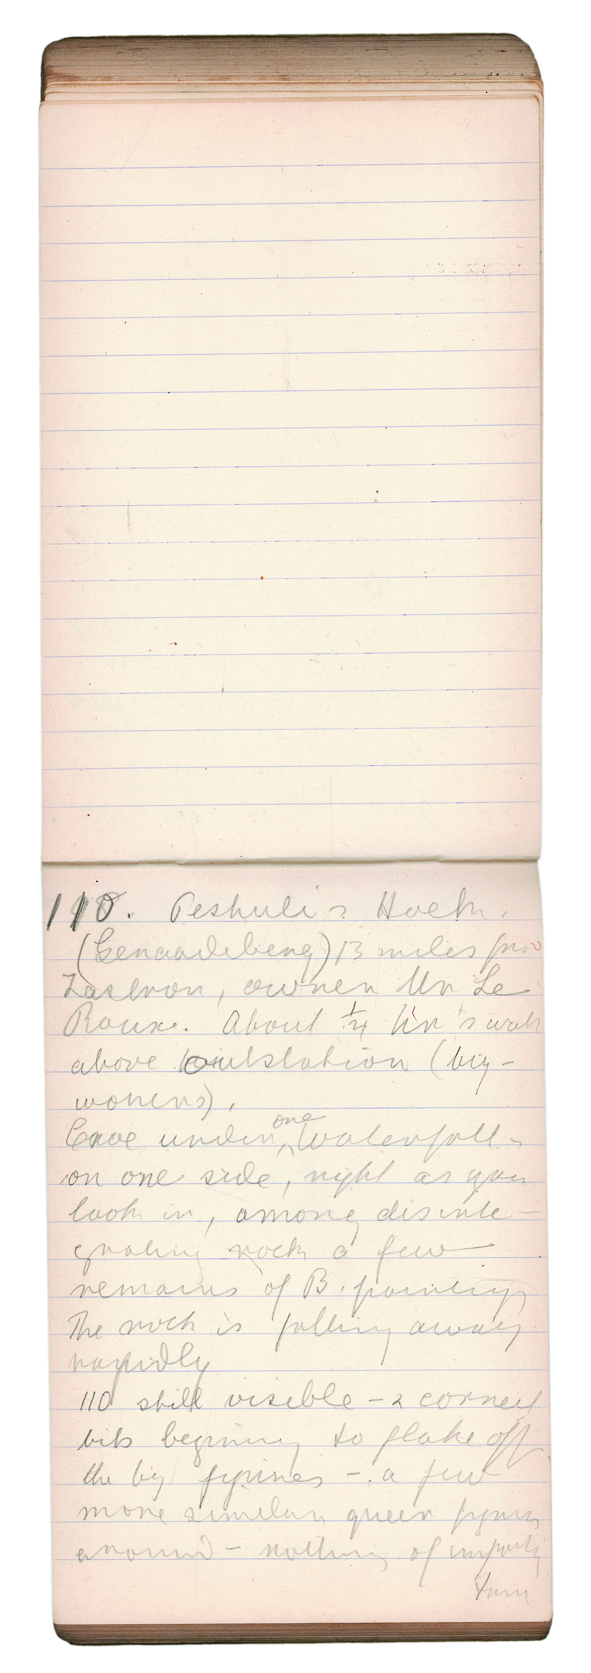 110. Peshuli's Hoek.
(Genaadeberg) 13 miles from
Zastron, owner Mr Le
Roux. About 1/4 hr's walk
above outstation (by-
woners).
Cave under one waterfall -
on one side, right as you
look in, among disinte-
grating rock a few
remains of B. paintings
The rock is falling away
rapidly
110 still visible - 2 corner
bits beginning to flake off
the big figures - a few
more similar queer figures
around - nothing of import